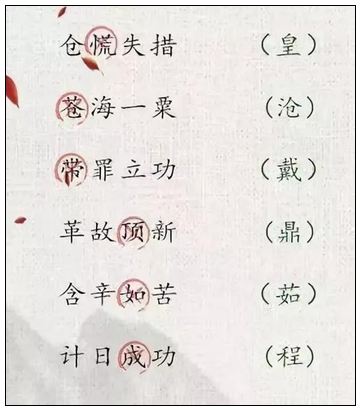 仓慌失措 （皇）
苍海一粟 （沧）
带罪立功 （戴）
革故顶新 （鼎）
含辛如苦 （茹）
计日成功 （程）